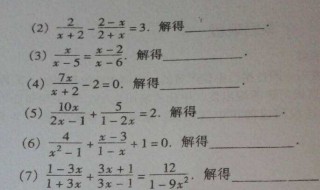 (2) \frac{2}{x+2}-\frac{2-x}{2+x}=3. 解得______.
(3) \frac{x}{x-5}=\frac{x-2}{x-6}. 解得______.
(4) \frac{7x}{x+2}-2=0. 解得______.
(5) \frac{10x}{2x-1}+\frac{5}{1-2x}=2. 解得______.
(6) \frac{4}{x^2-1}+\frac{x-3}{1-x}+1=0. 解得______.
(7) \frac{1-3x}{1+3x}+\frac{3x+1}{3x-1}=\frac{12}{1-9x^2}. 解得______.